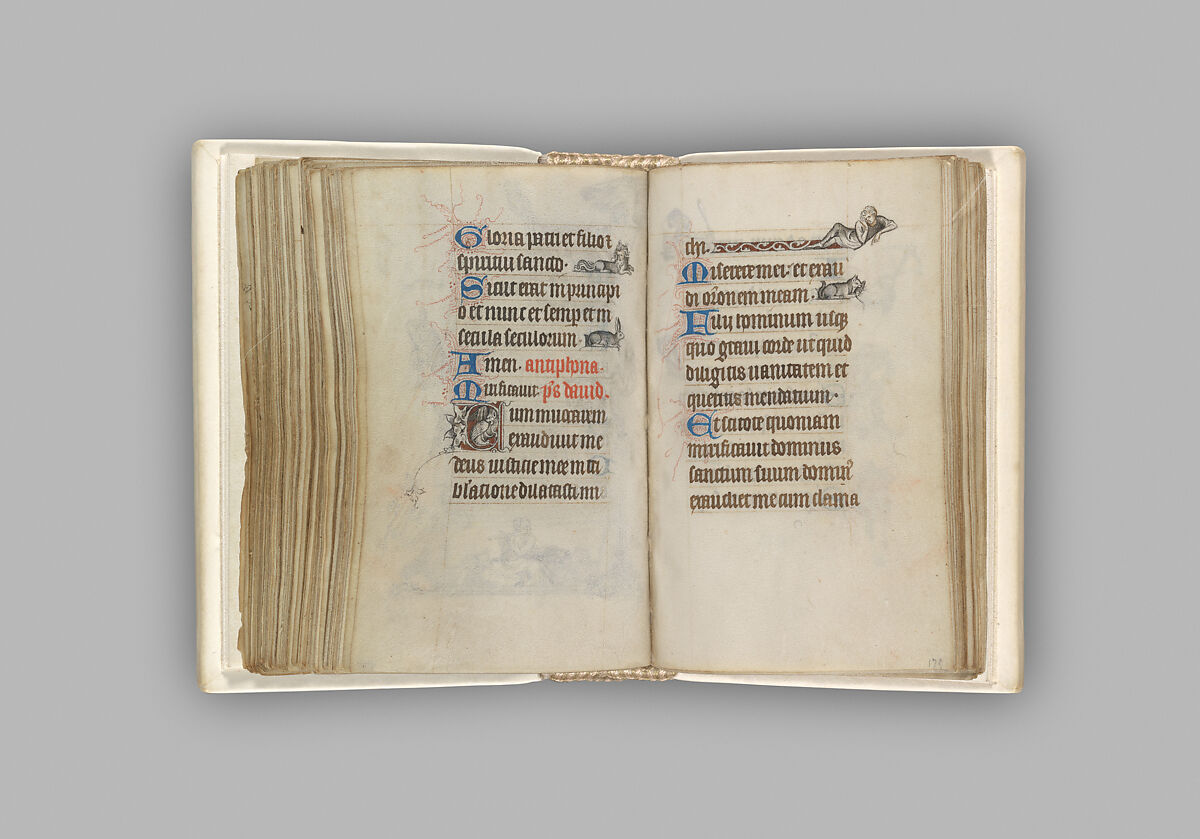 Gloria patri et filio ⁊
spiritui sancto.
Sicut erat in principi
o et nunc et semp et in
secula seculorum.
Amen. antiphona.
Mirificavit. ps david.
Cum invocarem
exaudivit me
deus iusticie mee in tri
bulatione dilatasti mi
chi.
Miserere mei. et exau
di orōnem meam.
Filij hominum usq
quo gravi corde ut quid
diligitis vanitatem et
queritis mendatium.
Et scitote quoniam
mirificavit dominus
sanctum suum domin⁹
exaudiet me cum clama